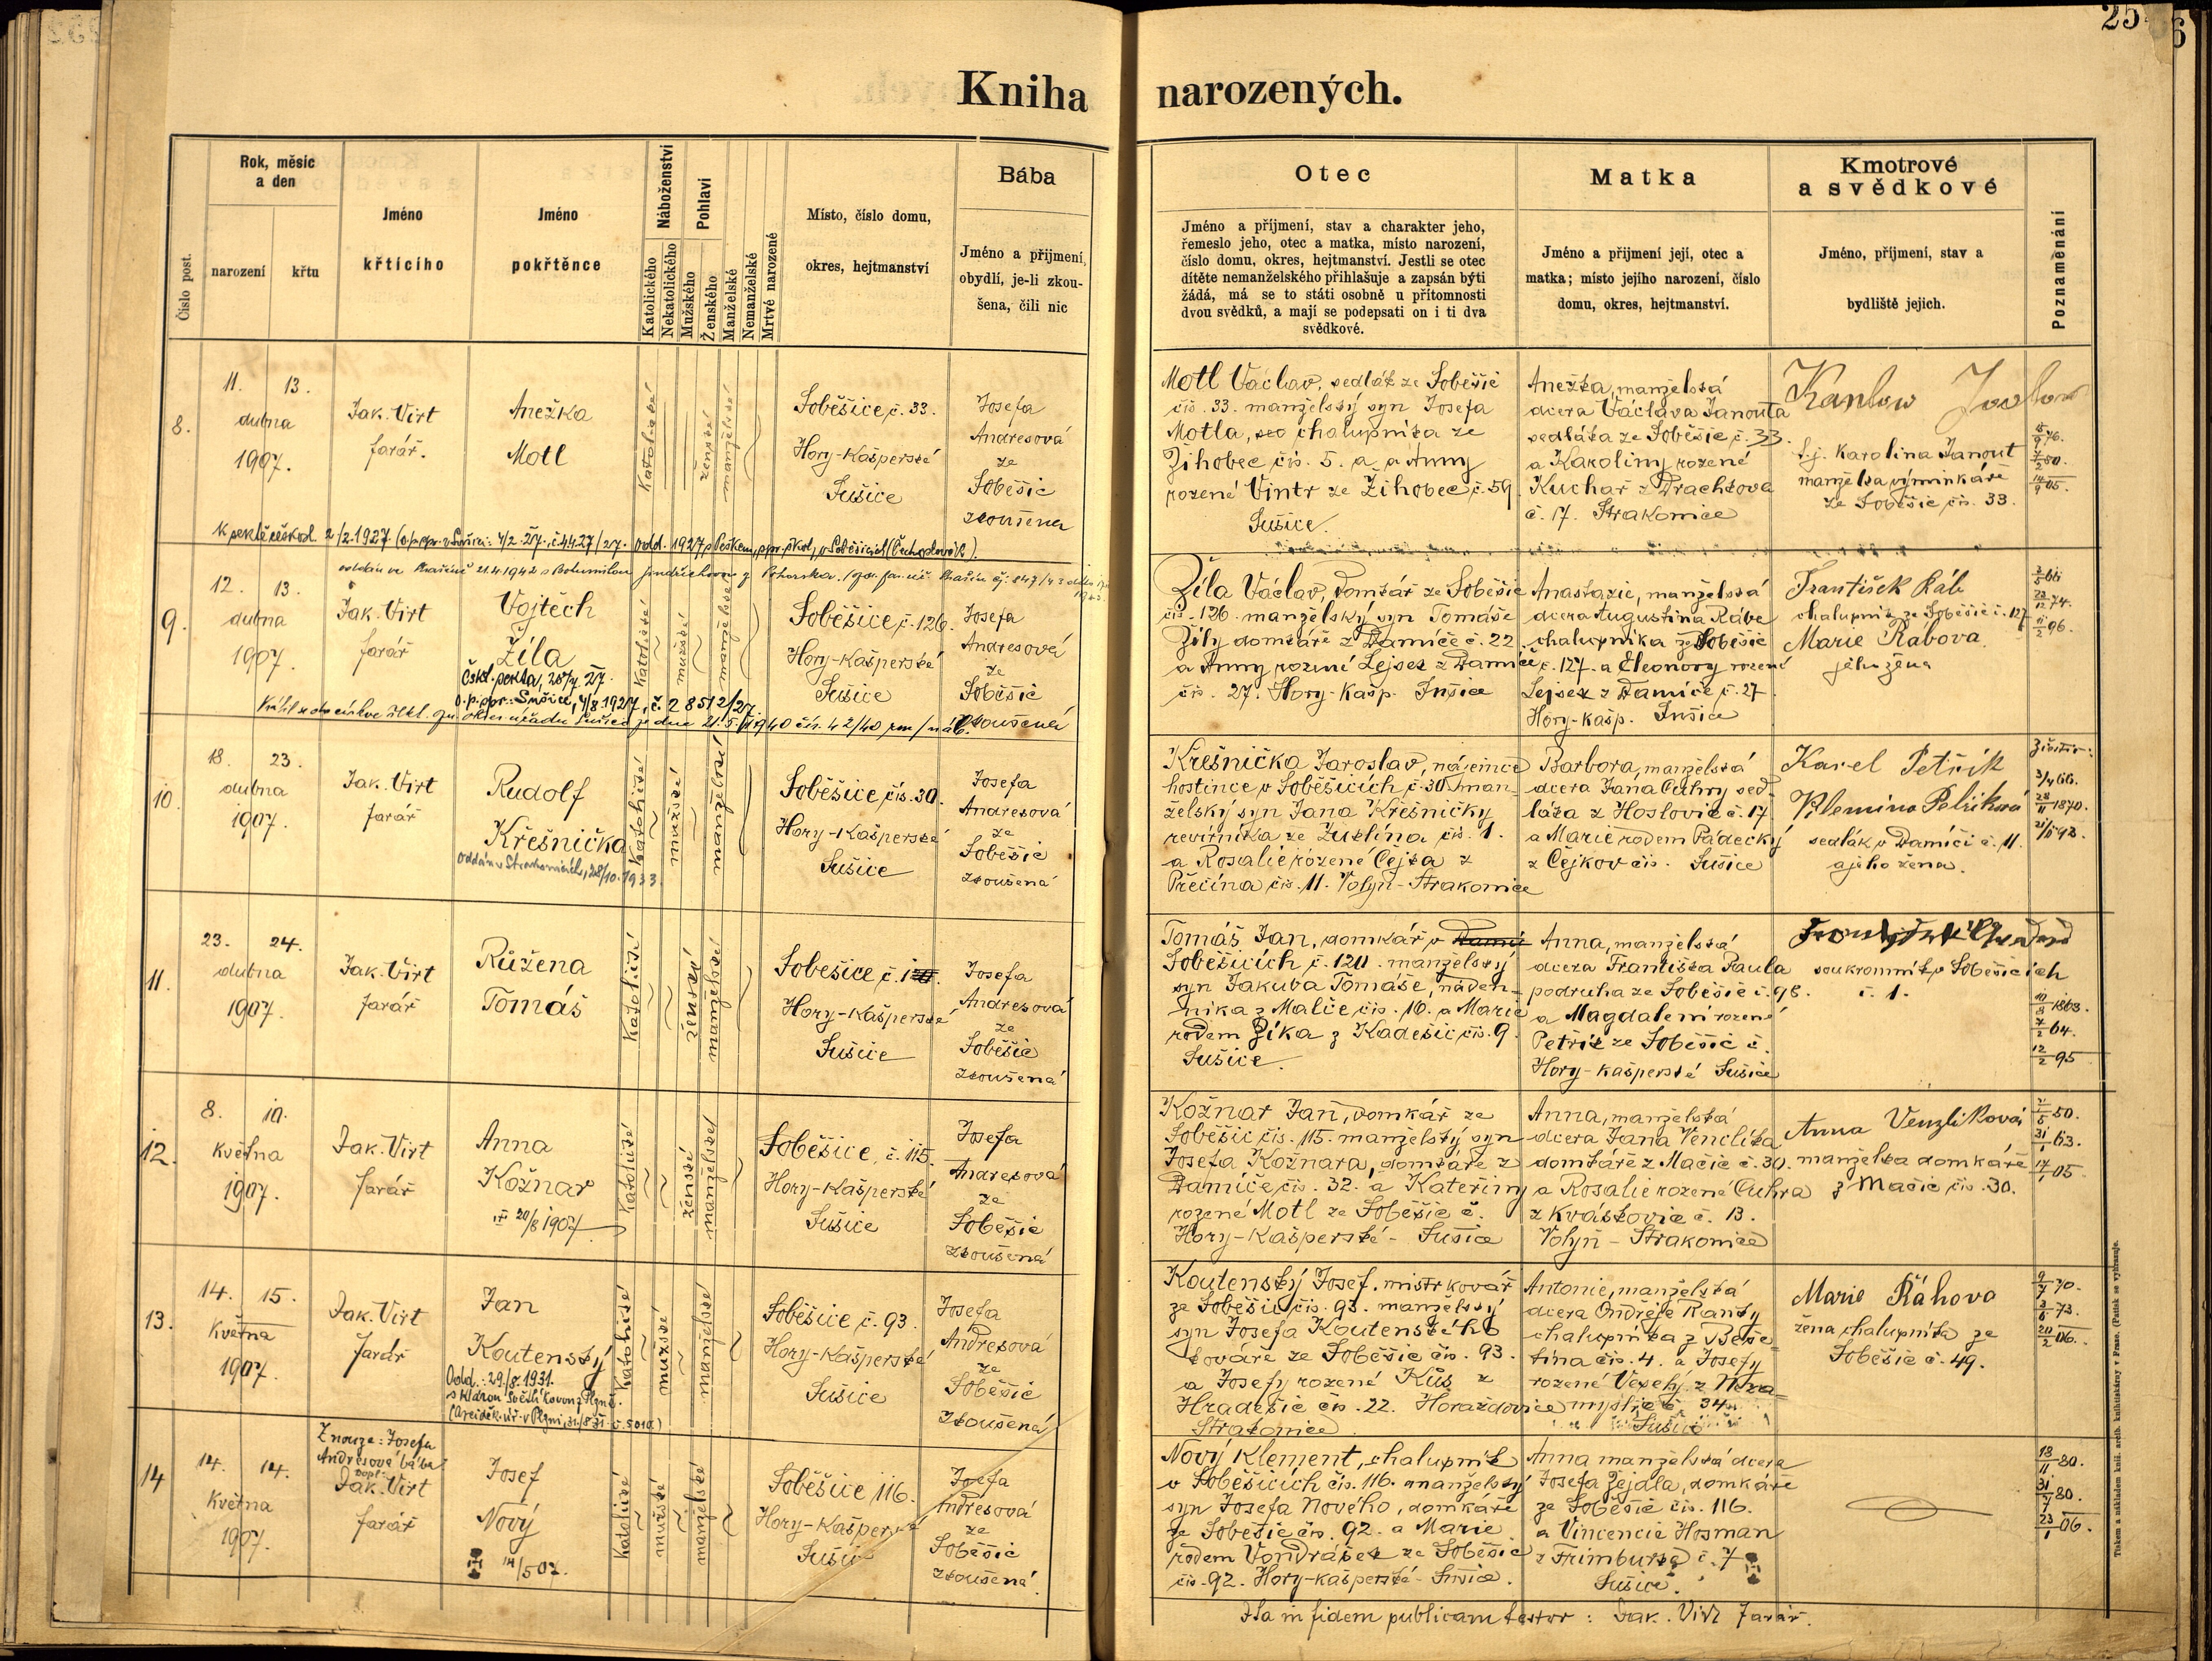 25
6
Kniha narozených.
Číslo post.
Rok, měsíc
a den
narození
křtu
Jméno
křtícího
Jméno
pokřtěnce
Náboženství
Katolického
Nekatolického
Pohlaví
Mužského
Ženského
Manželské
Nemanželské
Mrtvé narozené
Místo, číslo domu,
okres, hejtmanství
Bába
Jméno a přijmení,
obydlí, je-li zkou-
šena, čili nic
Otec
Jméno a příjmení, stav a charakter jeho,
řemeslo jeho, otec a matka, místo narození,
číslo domu, okres, hejtmanství. Jestli se otec
dítěte nemanželského přihlašuje a zapsán býti
žádá, má se to státi osobně u přítomnosti
dvou svědků, a mají se podepsati on i ti dva
svědkové.
Matka
Jméno a přijmení její, otec a
matka; místo jejího narození, číslo
domu, okres, hejtmanství.
Kmotrové
a svědkové
Jméno, příjmení, stav a
bydliště jejich.
Poznamenání
8.
11. 13.
dubna
1907.
Jak. Virt
farář.
Anežka
Motl
katolické
ženské
manželské
Soběšice, č. 33.
Hory-Kašperské
Sušice
Josefa
Andresová
ze
Soběšic
zkoušena
Motl Václav, sedlák ze Soběšic
čís. 33. manželský syn Josefa
Motla, chalupníka ze
Žihobec čís. 5. a Anny
rozené Vintr ze Žihobec, č. 59.
Sušice.
Anežka, manželská
dcera Václava Janouta
sedláka ze Soběšic č. 33.
a Karoliny rozené
Kuchař z Drachkova
č. 17. Strakonice
t. j. Karolina Janout
manželka výminkáře
ze Soběšic čís. 33.
9.
12. 13.
dubna
1907.
Jak. Virt
farář
Vojtěch
Žíla
katolické
mužské
manželské
Soběšice, č. 126.
Hory-Kašperské
Sušice
Josefa
Andresová
ze
Soběšic
zkoušená
Žíla Václav, domkář ze Soběšic
čís. 126 manželský syn Tomáše
Žíly domkáře z Damíče č. 22
a Anny rozené Lejsek z Damíče
čís. 27. Hory-Kašp. Sušice
Anastazie, manželská
dcera Augustina Rábe
chalupníka ze Soběšic
č. 127. a Eleonory rozené
Lejsek z Damíče č. 27
Hory-Kašp. Sušice
František Ráb
chalupník ze Soběšic č. 127
Marie Rabova
jeho žena
10.
18. 23.
dubna
1907.
Jak. Virt
farář
Rudolf
Křešnička
Oddán v Strakonicích, 28/10. 1933.
katolické
mužské
manželské
Soběšice, čís. 30.
Hory-Kašperské
Sušice
Josefa
Andresová
ze
Soběšic
zkoušená
Křešnička Jaroslav, nájemce
hostince v Soběšicích č. 30. man-
želský syn Jana Křešničky
revírníka ze Žuklína čís. 1.
a Rosalie rozené Cejka z
Přečína čís. 11. Volyň-Strakonice
Barbora, manželská
dcera Jana Cuhry sed-
láka z Hoslovic č. 17
a Marie rodem Pádecký
z Čejkov čís. Sušice
Karel Petřík
Vilemína Petříková
sedlák v Damíči č. 11.
a jeho žena.
11.
23. 24.
dubna
1907
Jak. Virt
farář
Růžena
Tomáš
katolické
ženské
manželské
Soběšice č. 120.
Hory-Kašperské
Sušice
Josefa
Andresová
ze
Soběšic
zkoušená
Tomáš Jan, domkář v
Soběšicích č. 120. manželský
syn Jakuba Tomáše, náden-
níka z Malče čís. 16. a Marie
rodem Zíka z Kadešic čís. 9.
Sušice.
Anna, manželská
dcera Františka Raula
podruha ze Soběšic č. 98.
a Magdaleni rozené
Petřík ze Soběšic č.
Hory-Kašperské Sušice
soukromník v Soběšicích
č. 1.
12.
8. 10.
května
1907.
Jak. Virt
farář
Anna
Kožnar
20/8 1907
katolické
ženské
manželské
Soběšice, č. 115.
Hory-Kašperské
Sušice
Josefa
Andresová
ze
Soběšic
zkoušená
Kožnar Jan, domkář ze
Soběšic čís. 115. manželský syn
Josefa Kožnara, domkáře z
Damíče čís. 32. a Kateřiny
rozené Motl ze Soběšic č.
Hory-Kašperské - Sušice
Anna, manželská
dcera Jana Venclíka
domkáře z Mačic č. 30.
a Rosalie rozené Cuhra
z Kváskovic č. 13.
Volyň - Strakonice
Anna Venzlíková
manželka domkáře
z Mačic čís. 30.
13.
14. 15.
května
1907.
Jak. Virt
farář
Jan
Koutenský
Odd.: 29./8. 1931.
katolické
mužské
manželské
Soběšice č. 93.
Hory-Kašperské
Sušice
Josefa
Andresová
ze
Soběšic
zkoušená
Koutenský Josef, mistr kovář
ze Soběšic čís. 93. manželský
syn Josefa Koutenského
kováře ze Soběšic čís. 93.
a Josefy rozené Kůs z
Hradešic čís. 22. Horažďovice
Strakonice
Antonie, manželská
dcera Ondřeje Ranky
chalupníka z Beše-
tína čís. 4. a Josefy
rozené Veselý z Neza-
myslic č. 34.
Sušice
Marie Řáhova
žena chalupníka ze
Soběšic č. 49.
14
14. 14.
května
1907.
Z nouze: Josefa
Andresová bába
dopl:
Jak. Virt
farář
Josef
Nový
14/5 07.
katolické
mužské
manželské
Soběšice 116.
Hory-Kašperské
Sušice
Josefa
Andresová
ze
Soběšic
zkoušená.
Nový Klement, chalupník
v Soběšicích čís. 116. manželský
syn Josefa Nového, domkáře
ze Soběšic čís. 92. a Marie
rodem Vondrášek ze Soběšic
čís. 92. Hory-kašperské - Sušice.
Anna manželská dcera
Josefa Zejdla, domkáře
ze Soběšic čís. 116.
a Vincencie Hosman
z Frimburka č. 7
Sušice.
Ita in fidem publicam testor: Jak. Virt farář.